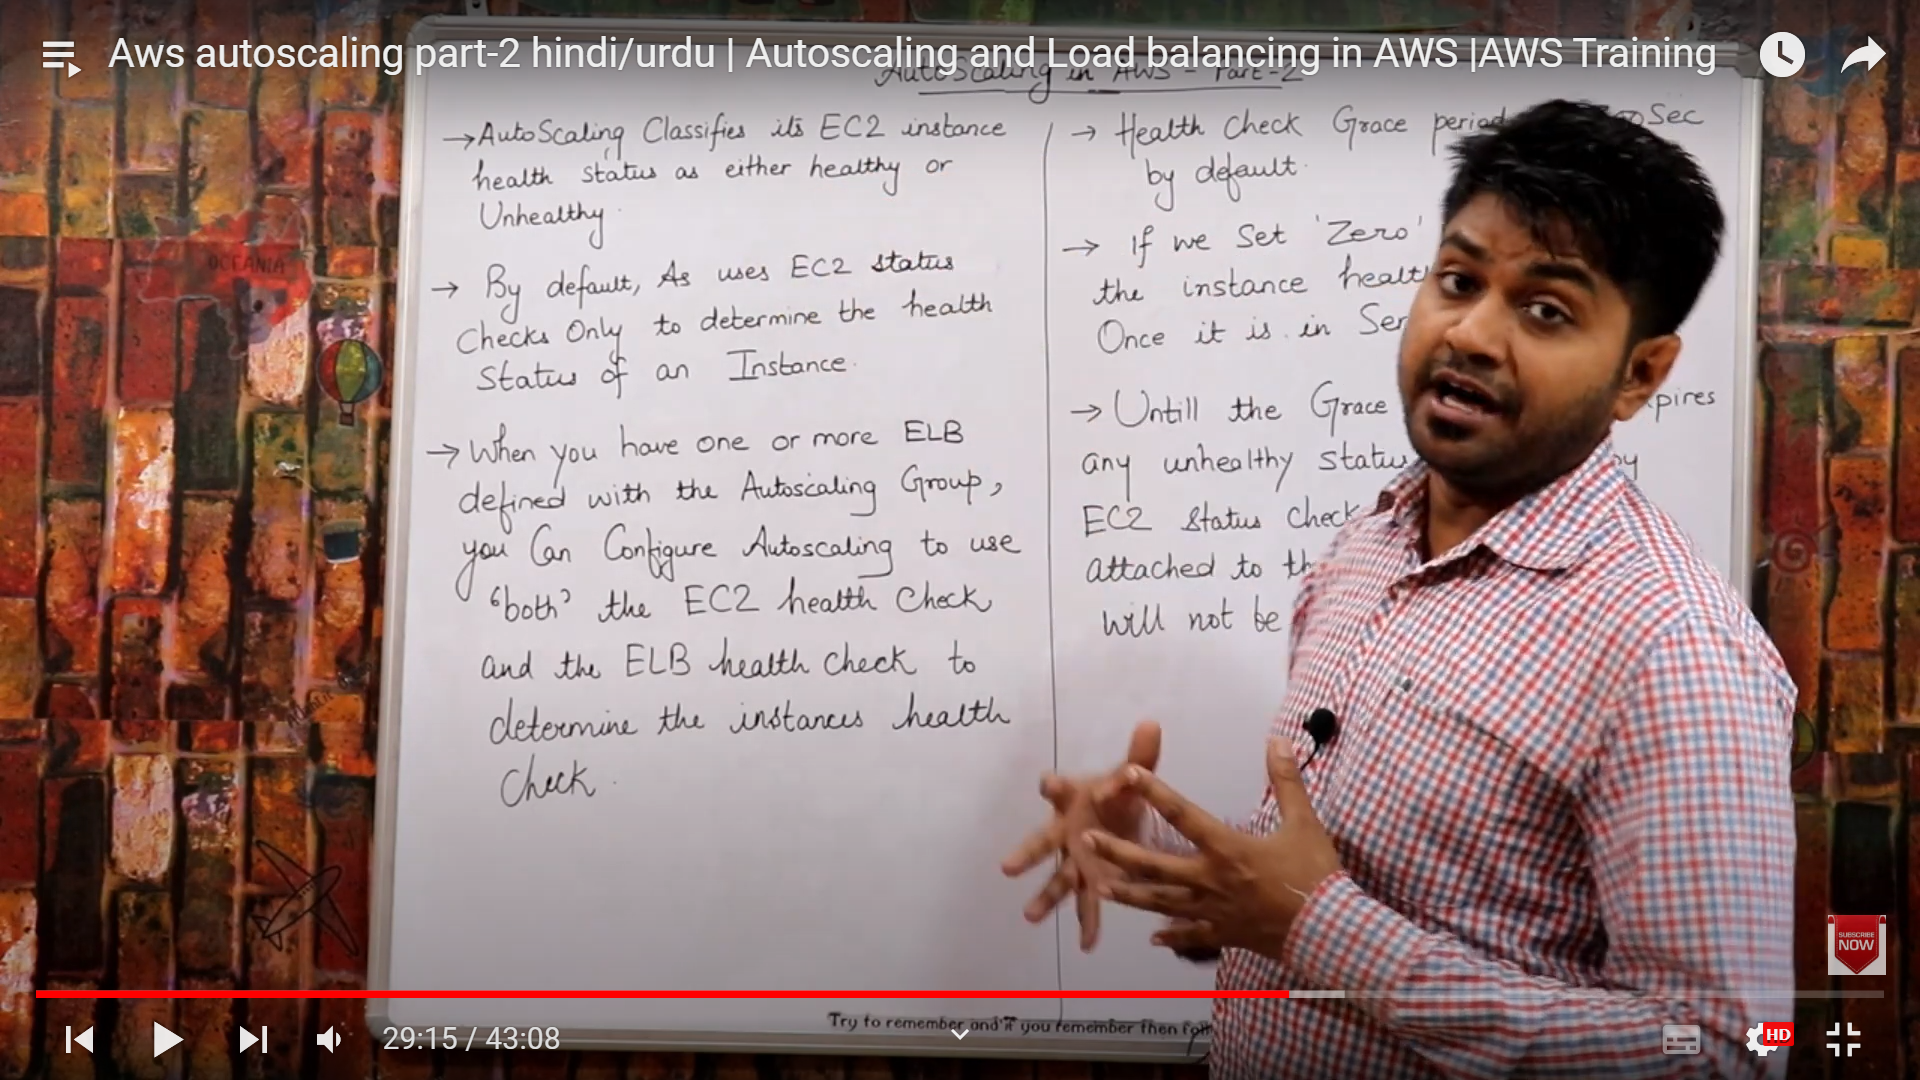 Aws autoscaling part-2 hindi/urdu | Autoscaling and Load balancing in AWS |AWS Training
AutoScaling in AWS - Part-2
→ AutoScaling Classifies its EC2 instance
health status as either healthy or
Unhealthy.
→ By default, As uses EC2 status
Checks Only to determine the health
Status of an Instance.
→ When you have one or more ELB
defined with the Autoscaling Group,
you Can Configure Autoscaling to use
'both' the EC2 health Check
and the ELB health check to
determine the instances health
Check.
→ Health Check Grace period Sec
by default.
→ If we Set 'Zero'
the instance
Once it is in
→ Untill the Grace
any unhealthy status
EC2 Status Check
attached to
will not be
OCEANIA
Try to remember and if you remember then
SUBSCRIBE
NOW
29:15 / 43:08
HD